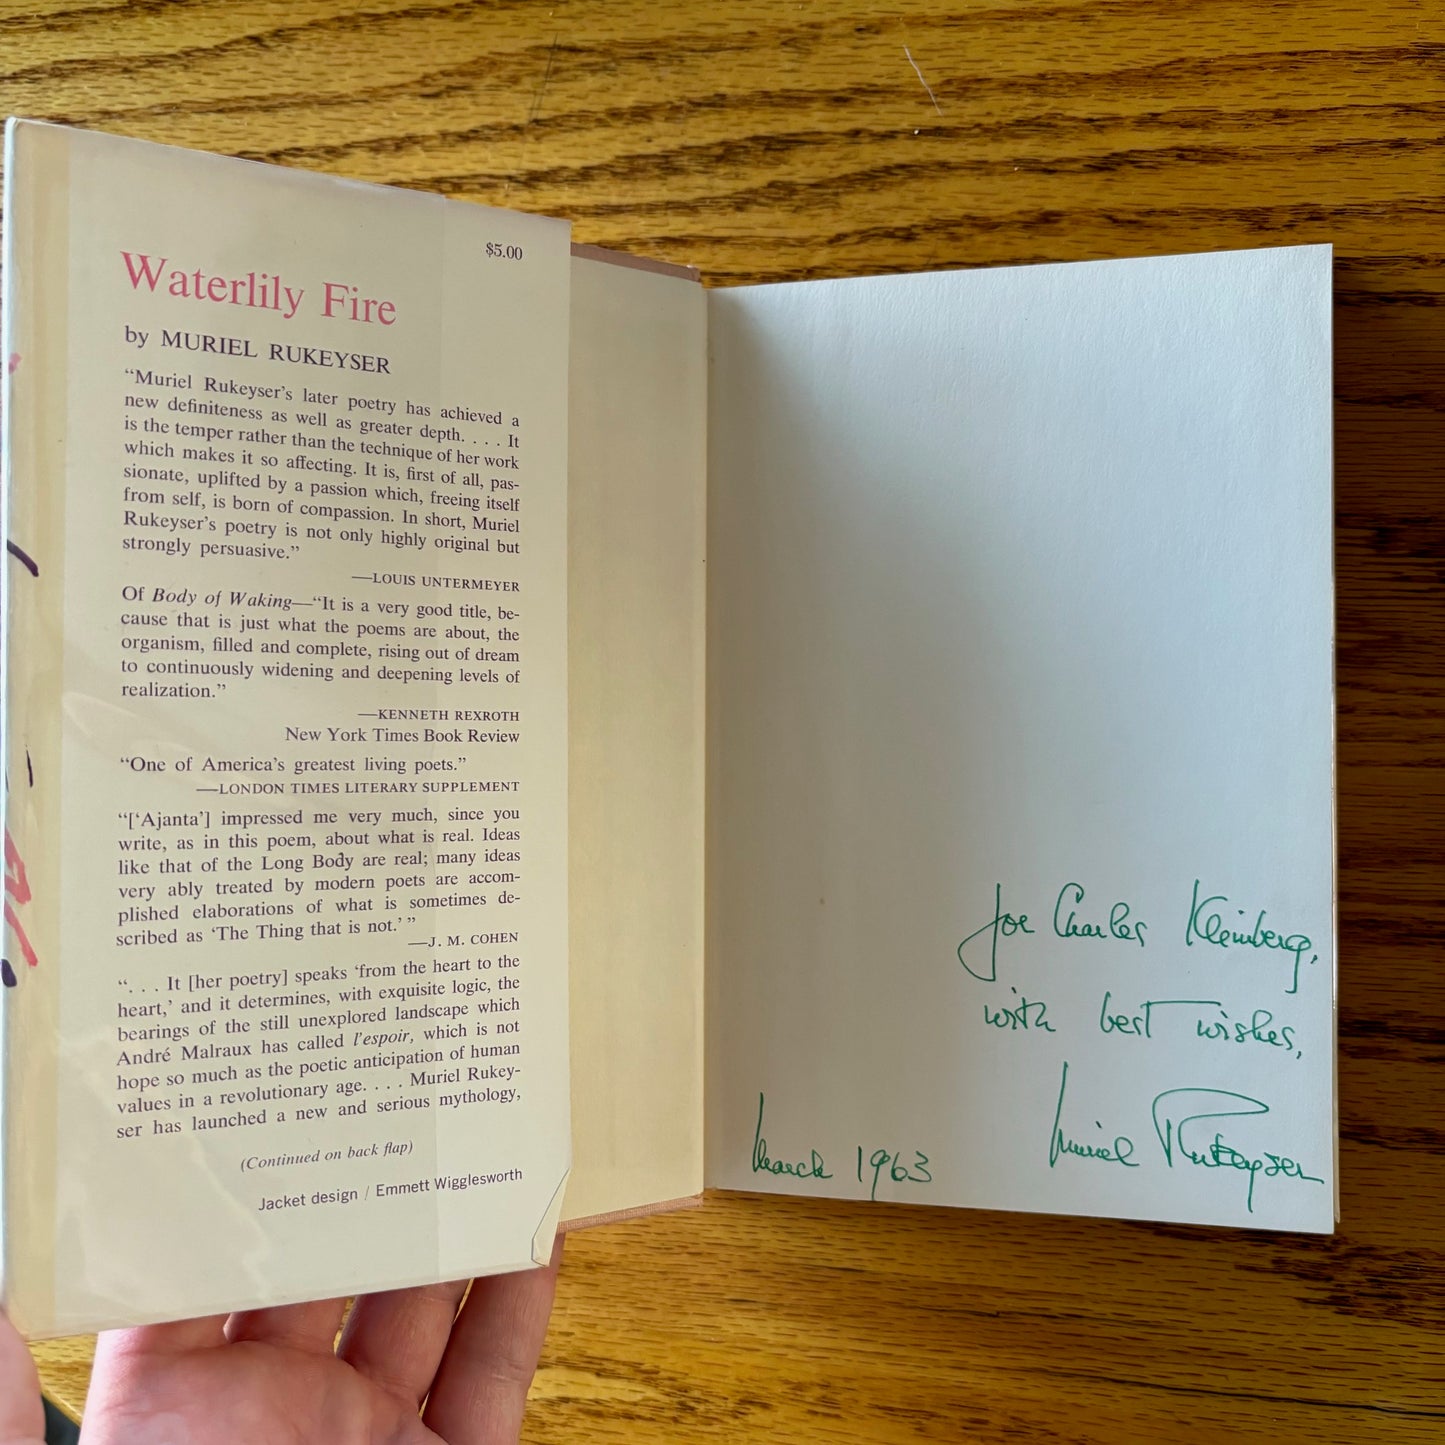 $5.00
Waterlily Fire
by MURIEL RUKEYSER
“Muriel Rukeyser’s later poetry has achieved a
new definiteness as well as greater depth. . . . It
is the temper rather than the technique of her work
which makes it so affecting. It is, first of all, pas-
sionate, uplifted by a passion which, freeing itself
from self, is born of compassion. In short, Muriel
Rukeyser’s poetry is not only highly original but
strongly persuasive.”
—LOUIS UNTERMEYER
Of Body of Waking—“It is a very good title, be-
cause that is just what the poems are about, the
organism, filled and complete, rising out of dream
to continuously widening and deepening levels of
realization.”
—KENNETH REXROTH
New York Times Book Review
“One of America’s greatest living poets.”
—LONDON TIMES LITERARY SUPPLEMENT
“[‘Ajanta’] impressed me very much, since you
write, as in this poem, about what is real. Ideas
like that of the Long Body are real; many ideas
very ably treated by modern poets are accom-
plished elaborations of what is sometimes de-
scribed as ‘The Thing that is not.’ ”
—J. M. COHEN
“. . . It [her poetry] speaks ‘from the heart to the
heart,’ and it determines, with exquisite logic, the
bearings of the still unexplored landscape which
André Malraux has called l’espoir, which is not
hope so much as the poetic anticipation of human
values in a revolutionary age. . . . Muriel Rukey-
ser has launched a new and serious mythology,
(Continued on back flap)
Jacket design / Emmett Wigglesworth
for Charles Kleinberg,
with best wishes,
Muriel Rukeyser
March 1963